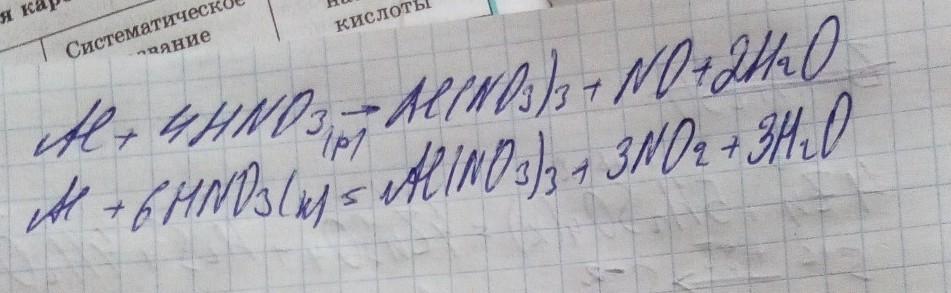 я кар
Систематическое
кислоты
Al + 4HNO₃(р) → Al(NO₃)₃ + NO + 2H₂O
Al + 6HNO₃(к) = Al(NO₃)₃ + 3NO₂ + 3H₂O